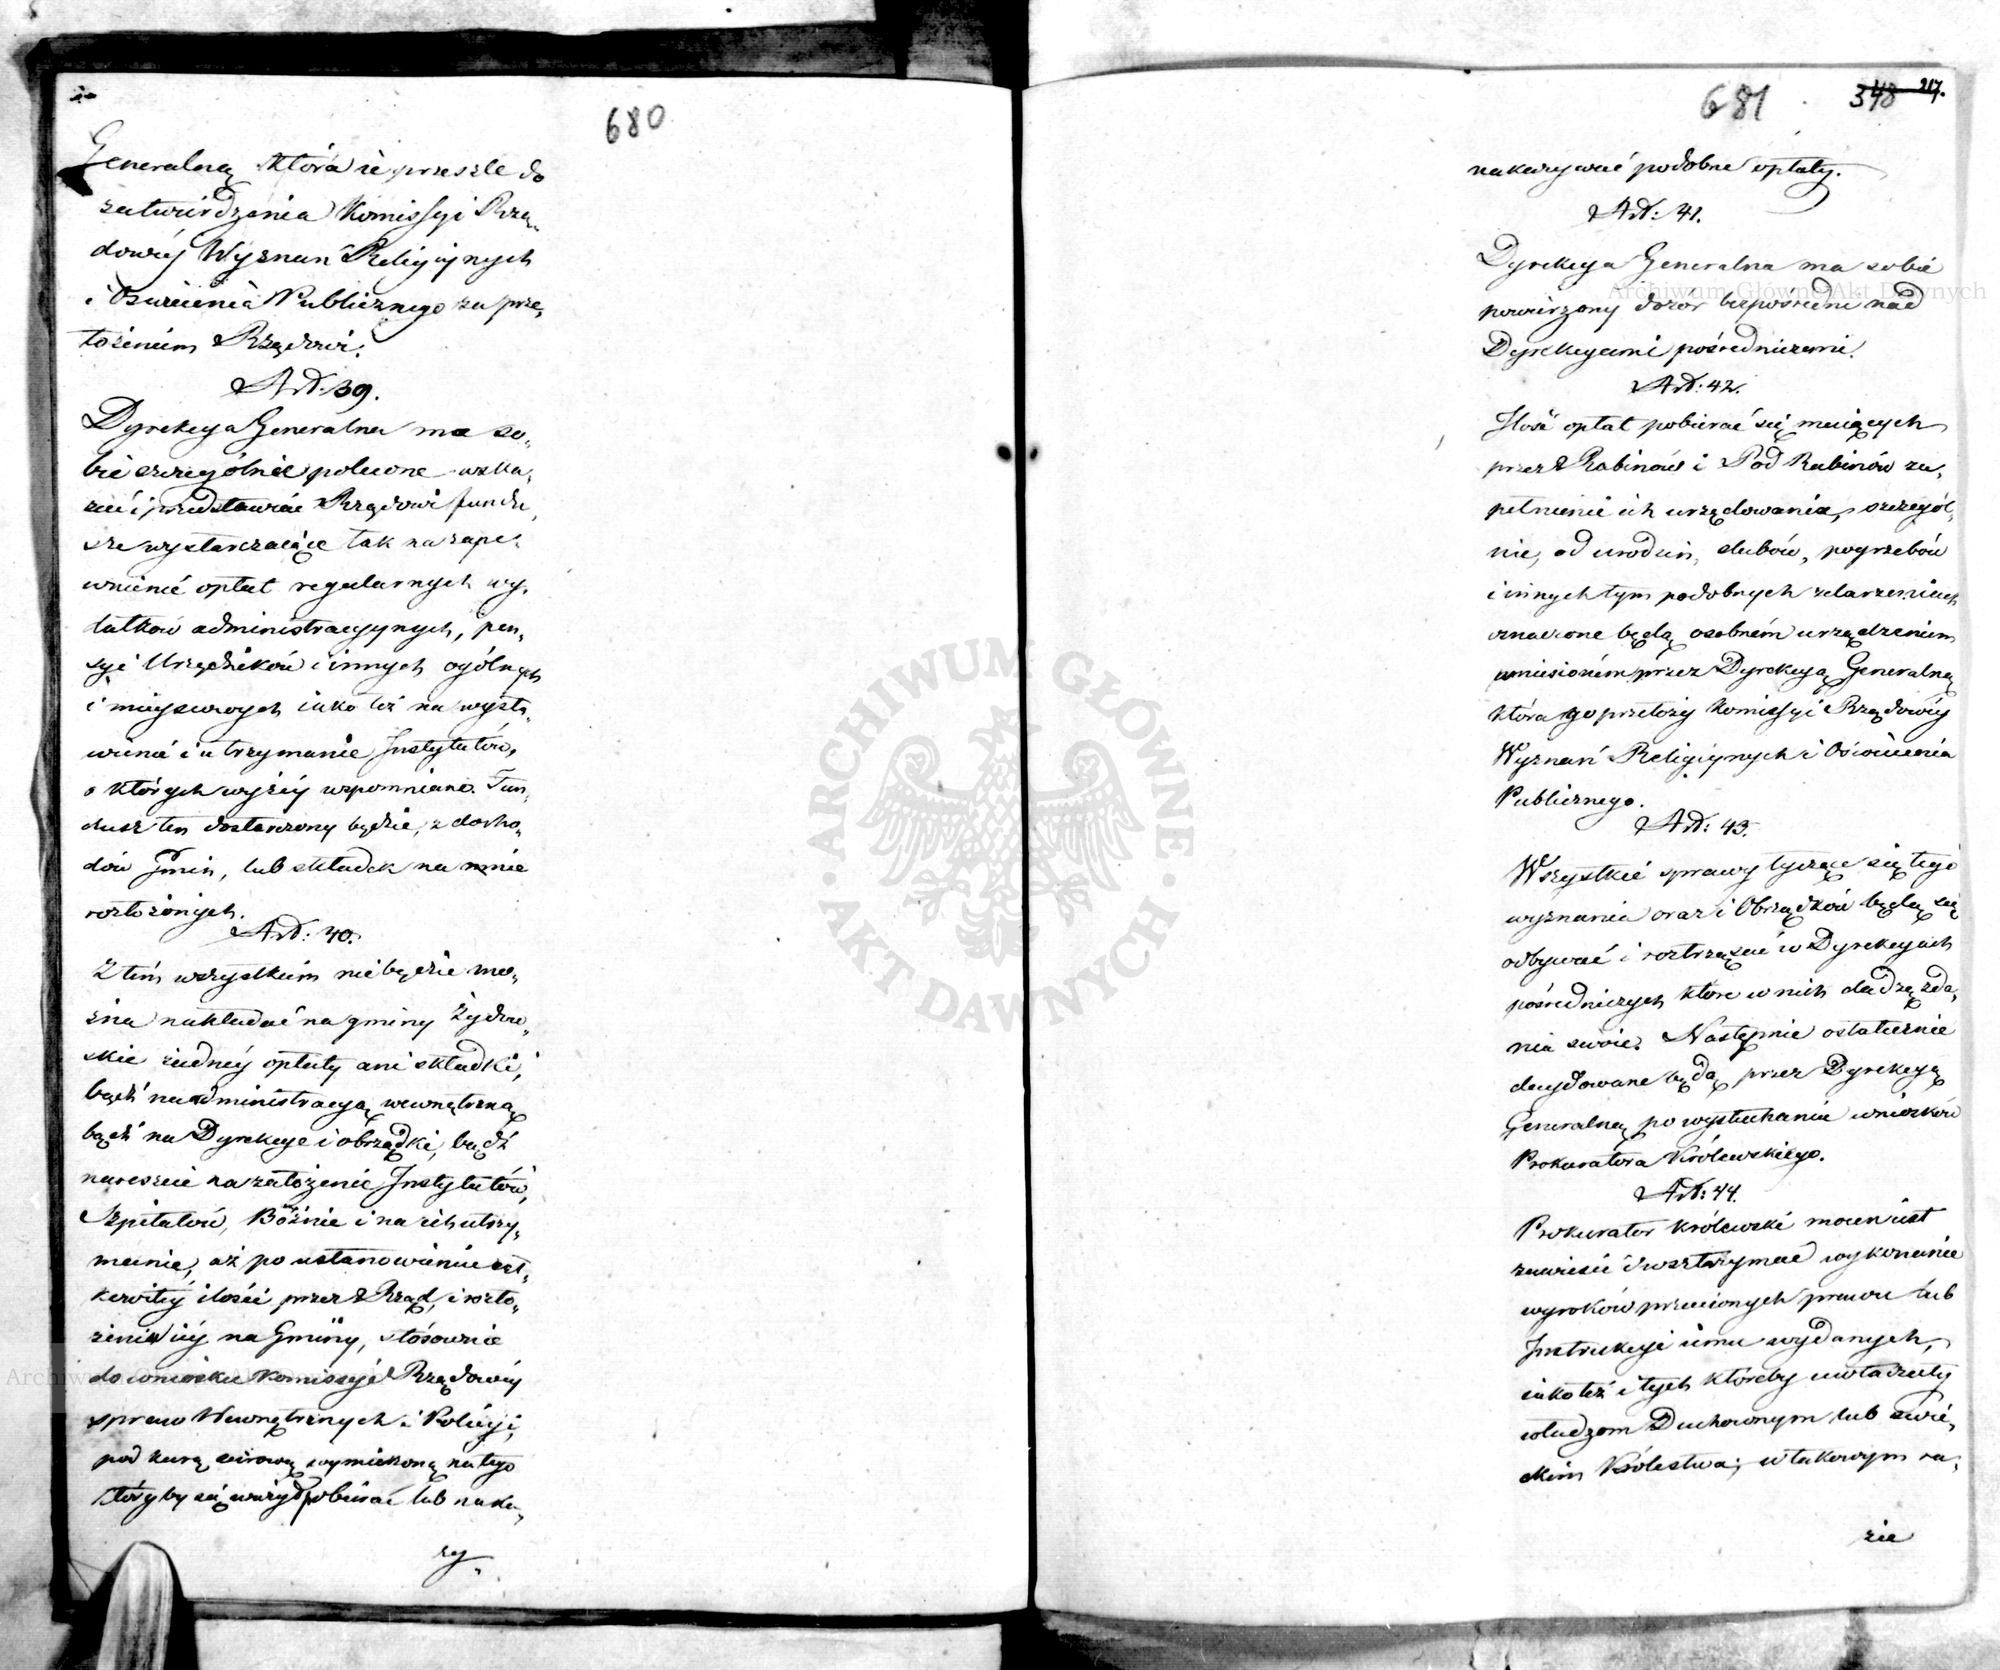 680
Generalną która ie przeszle do
zatwierdzenia Kommissyi Rzą„
dowéy Wyznań Religiynych
i Oświecenia Publicznego za prze„
łożeniem Rządowi.
Art: 39.
Dyrekcya Generalna ma so„
bie szczególnie polecone wska„
zać i przedstawiać Rządowi fundu„
sze wystarczaiące tak na zape„
wnienie opłat regularnych wy„
datków administracyynych, pen„
syi Urzędników i innych ogólnych
i mieyscowych iako też na wysta„
wienie i utrzymanie Instytutów,
o których wyżéy wspomniano. Fun„
dusz ten dostarczony będzie, z docho„
dów Gmin, lub składek na nie
rozłożonych.
Art: 40.
Z tém wszystkiém nie będzie mo„
żna nakładać na gminy Żydow„
skie żadnéy opłaty ani składki,
bądź na administracyą wewnętrzną
bądź na Dyrekcye i obrządki, bądź
nareszcie na założenie Instytutów,
Szpitalów, Bóżnic i na ich utrzy„
manie, aż po ustanowieniu cał„
kowitéy ilości przez Rząd, i rozło„
żeniu iéy na Gminy, stósownie
do wniosku Kommissyi Rządowéy
spraw Wewnętrznych i Policyi,
pod karą surową wymierzoną na tego
któryby się ważył pobierać lub naka„
zy„
681
348 217.
nakazywać podobne opłaty.
Art: 41.
Dyrekcya Generalna ma sobie
powierzony dozór bezpośredni nad
Dyrekcyami pośredniczemi.
Art: 42.
Ilość opłat pobierać się maiących
przez Rabinów i Pod Rabinów za„
pełnienie ich urzędowania, szczegól„
nie, od urodzin, ślubów, pogrzebów
i innych tym podobnych zdarzeniach
oznaczone będą osobném urządzeniem
wniesioném przez Dyrekcyą Generalną
która go przełoży Kommissyi Rządowéy
Wyznań Religiynych i Oświecenia
Publicznego.
Art: 43.
Wszystkie sprawy tyczące się tego
wyznania oraz i Obrządków będą się
odbywać i roztrząsać w Dyrekcyach
pośredniczych które w nich dadzą zda„
nia swoie. Następnie ostatecznie
decydowane będą przez Dyrekcyą
Generalną po wysłuchaniu wniosków
Prokuratora Królewskiego.
Art: 44.
Prokurator Królewski mocen iest
zawiesić i wstrzymać wykonanie
wyroków przeciwnych prawu lub
Instrukcyi iemu wydanych,
iako też i tych któreby uwłaczały
władzom Duchownym lub świe„
ckim Królestwa; w takowym ra„
zie